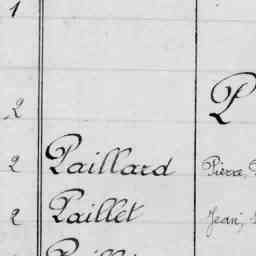 1
2 P
2 Paillard Pierre,
2 Paillet Jean,